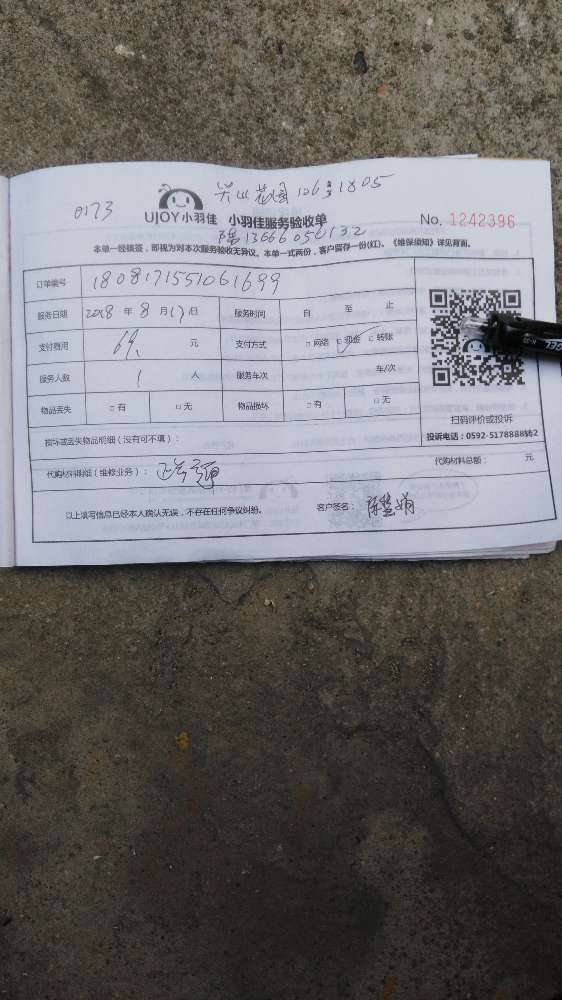 0173 花园 126 1805
UJOY小羽佳 小羽佳服务验收单 No. 1242396
陈13666056132
本单一经核签，即视为对本次服务验收无异议。本单一式两份，客户留存一份(红)、《维保须知》详见背面。
订单编号 1808171551061699
服务日期 2018 年 8 月 17 日 服务时间 自 至 止
支付费用 69. 元 支付方式 □ 网络 □ 现金 □ 转账
服务人数 1 人 服务车次 车/次
物品丢失 □ 有 □ 无 物品损坏 □ 有 □ 无
扫码评价或投诉
投诉电话：0592-5178888转2
损坏或丢失物品明细（没有可不填）：
代购材料明细（维修业务）： 代购材料总额： 元
以上填写信息已经本人确认无误，不存在任何争议纠纷。 客户签名：